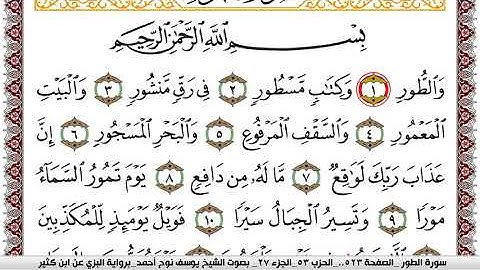 بِسْمِ اللَّهِ الرَّحْمَٰنِ الرَّحِيمِ
وَالطُّورِ ١ وَكِتَابٍ مَّسْطُورٍ ٢ فِي رَقٍّ مَّنشُورٍ ٣ وَالْبَيْتِ
الْمَعْمُورِ ٤ وَالسَّقْفِ الْمَرْفُوعِ ٥ وَالْبَحْرِ الْمَسْجُورِ ٦ إِنَّ
عَذَابَ رَبِّكَ لَوَاقِعٌ ٧ مَّا لَهُ مِن دَافِعٍ ٨ يَوْمَ تَمُورُ السَّمَاءُ
مَوْرًا ٩ وَتَسِيرُ الْجِبَالُ سَيْرًا ١٠ فَوَيْلٌ يَوْمَئِذٍ لِّلْمُكَذِّبِينَ
سورة الطور_الصفحة ٥٢٣_.. الحزب ٥٣_الجزء ٢٧_ بصوت الشيخ يوسف نوح أحمد_برواية البزي عن ابن كثير